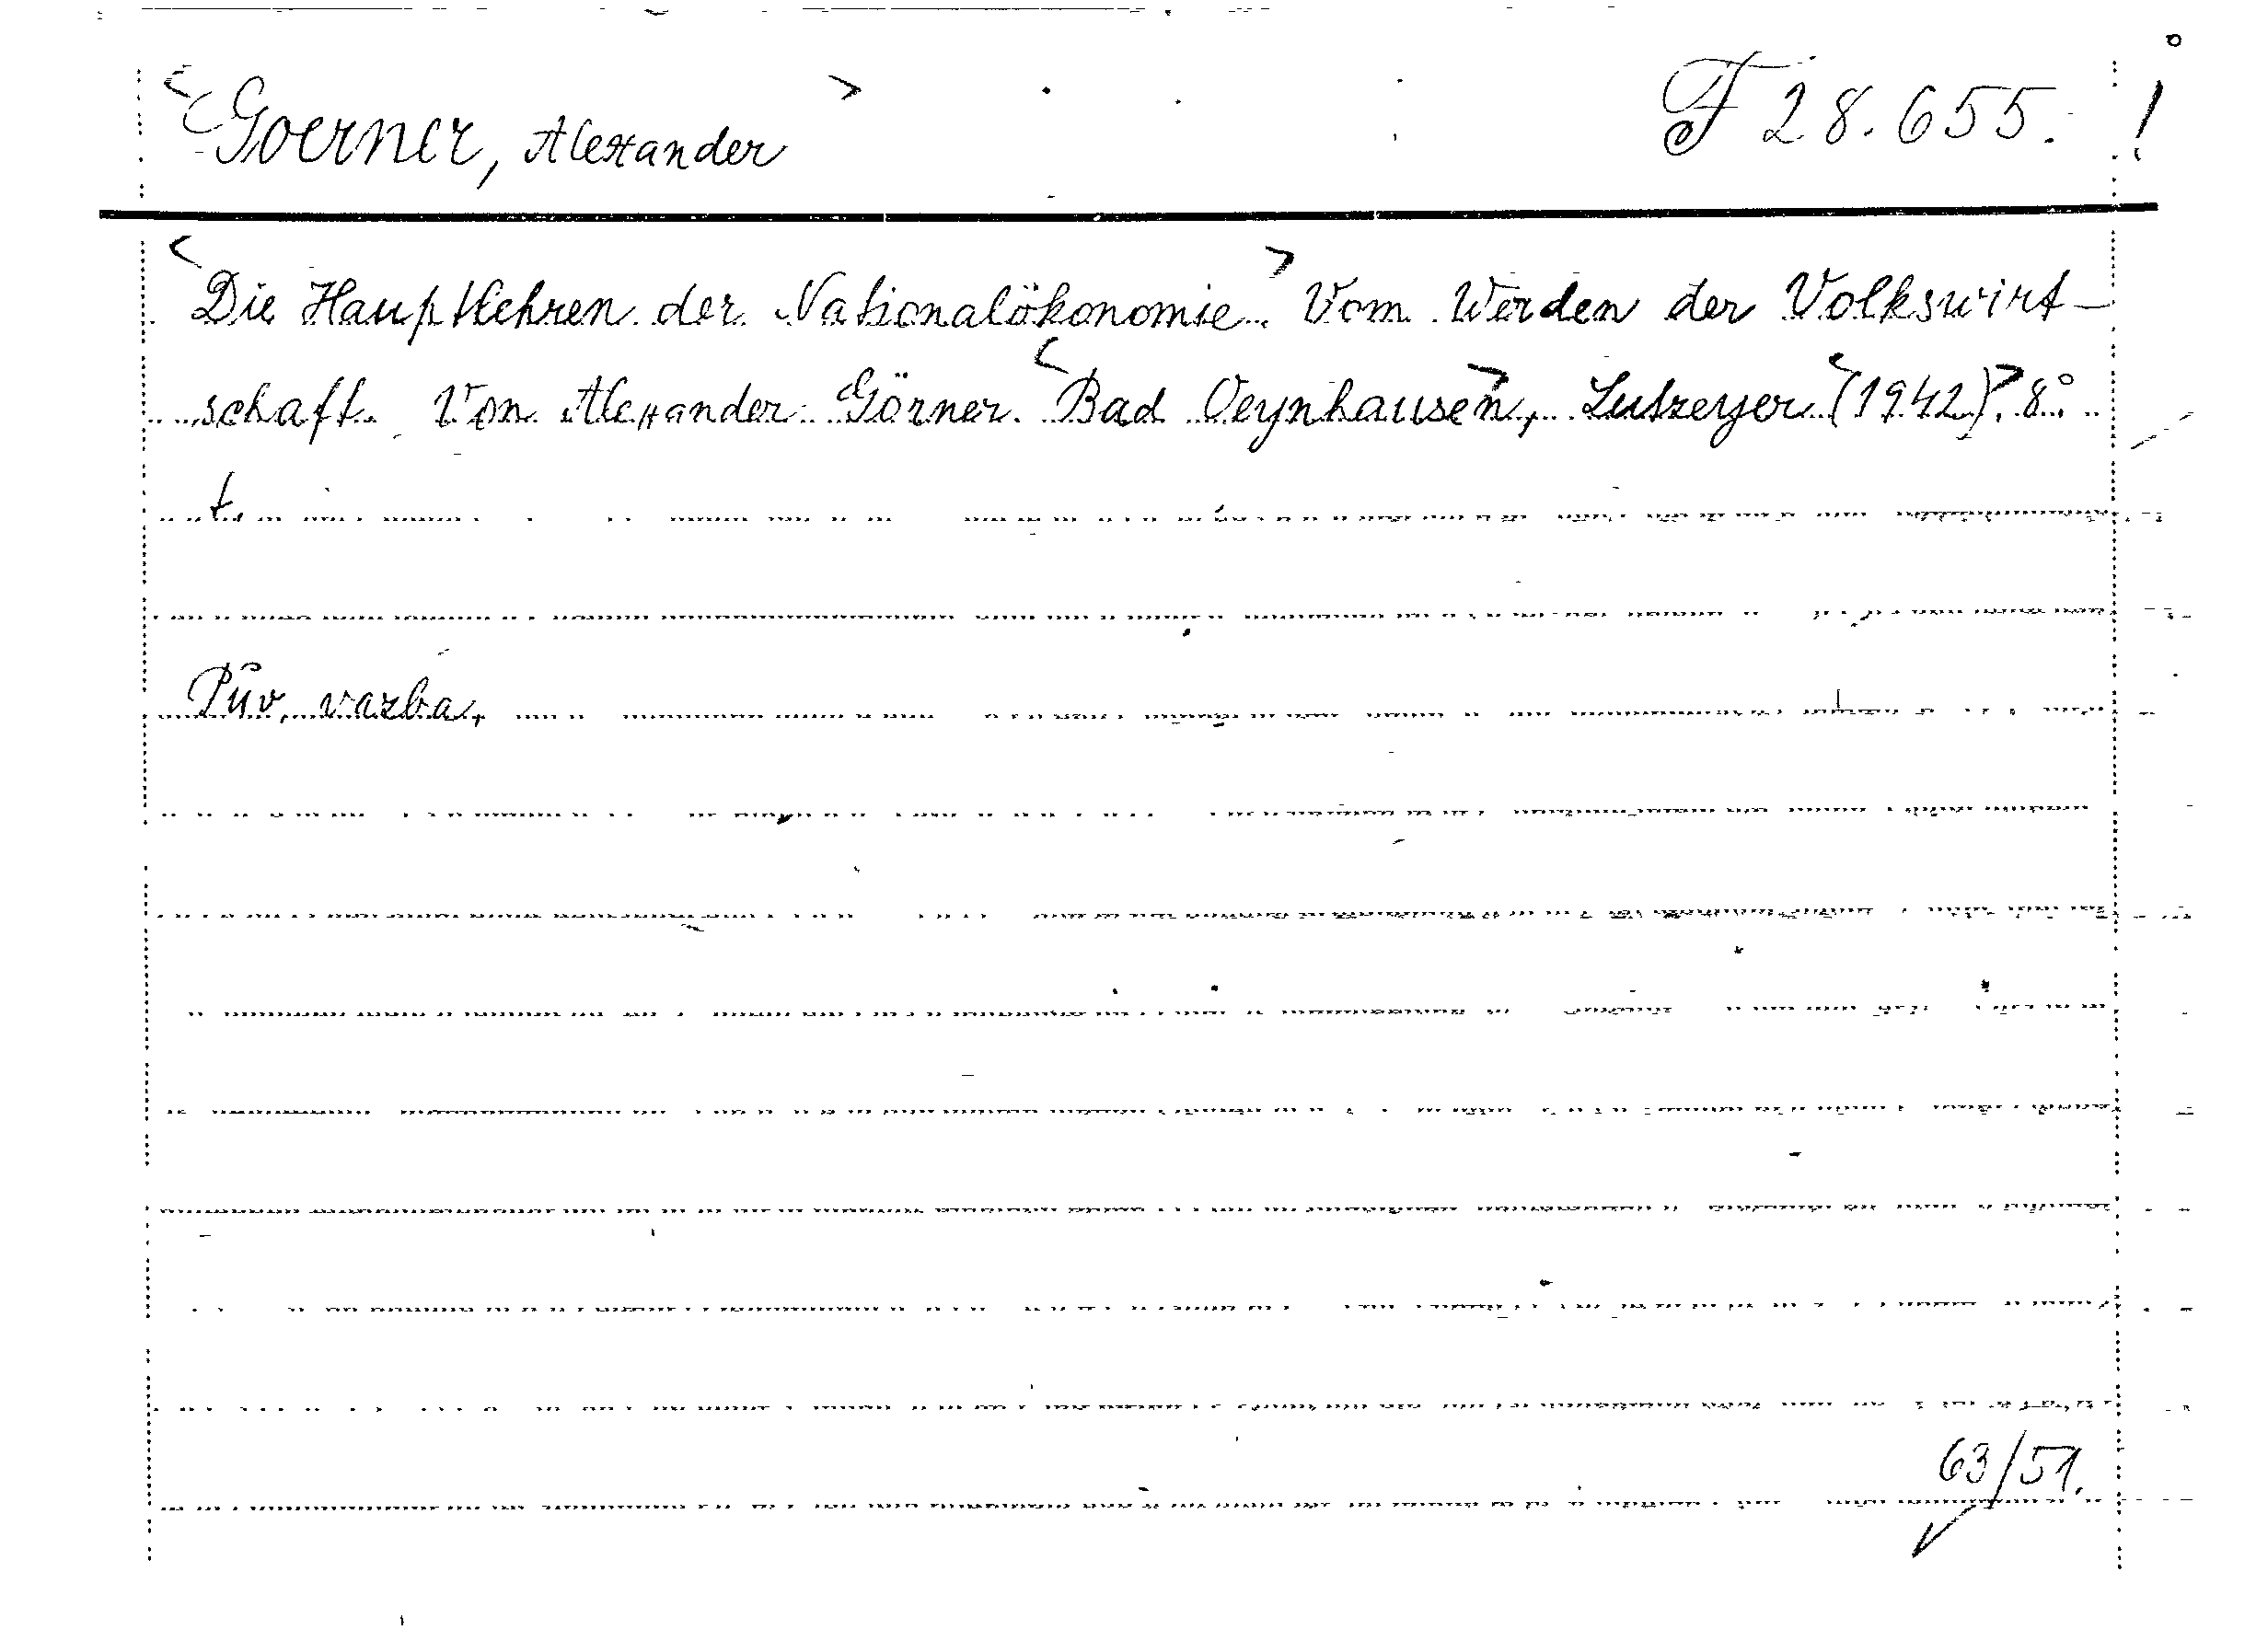 <Goerner, Alexander> F 28.655. !
<Die Hauptlehren der Nationalökonomie.> Vom Werden der Volkswirt-
schaft. Von Alexander Görner. <Bad Oeynhausen>, Lutzeyer <(1942)>. 8°.
t.
Pův. vazba.
63/51.